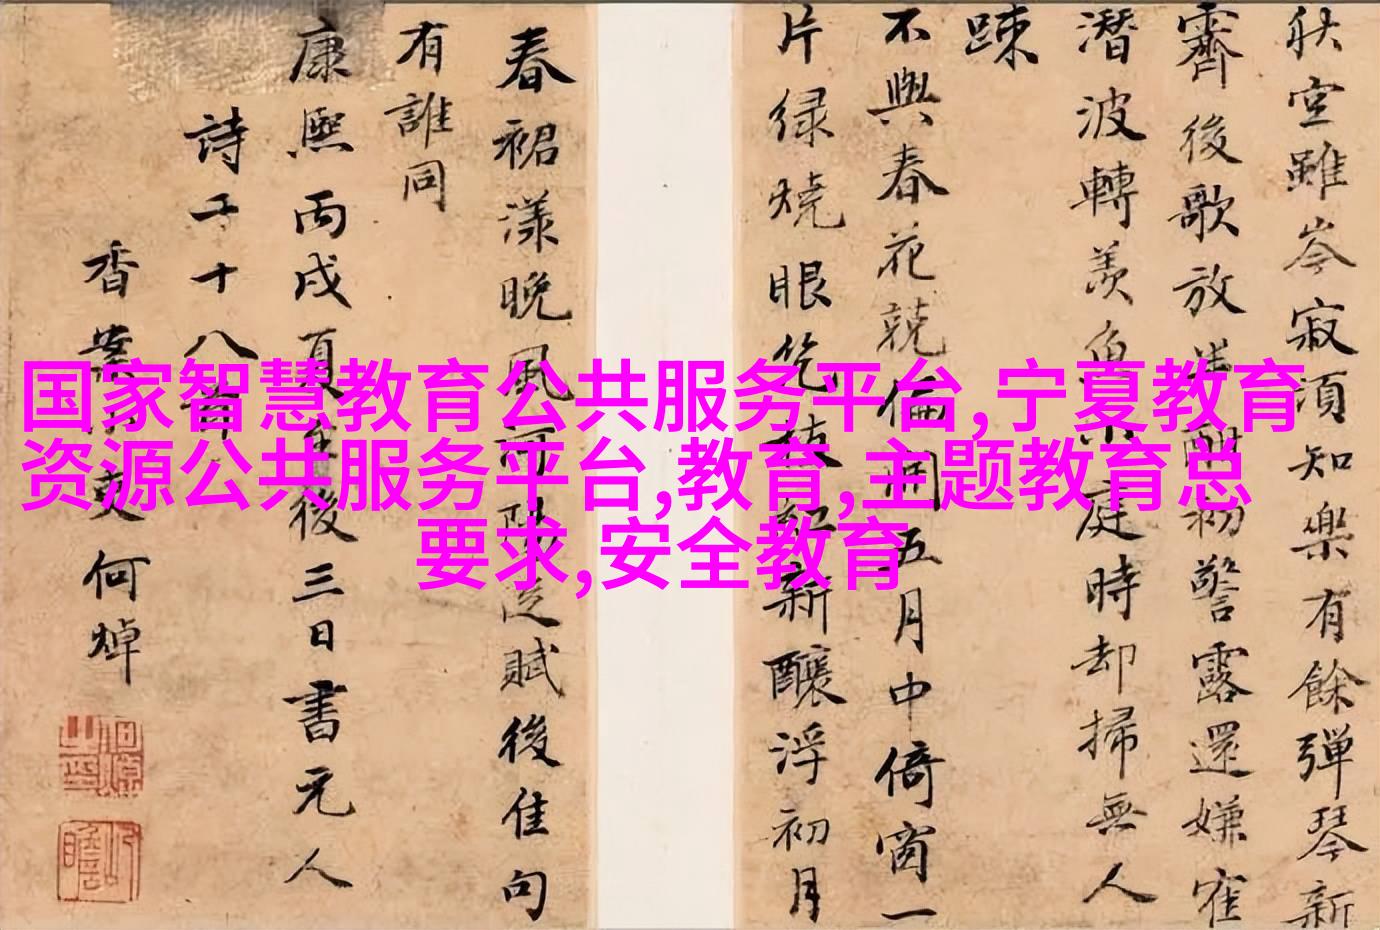 国家智慧教育公共服务平台,宁夏教育
资源公共服务平台,教育,主题教育总
要求,安全教育
秋室雖岑寂須知樂有餘彈琴新
霽後歌放半酣初警露還嫌隺
潛波轉羨魚小庭時却掃無人
踈
不與春花競偏開五月中倚窗一
片緑燒眼幾枝紅新釀浮初月
春裙漾晚風可賦後佳句
有誰同
康熙丙戌夏至後三日書元人
詩二十八首
香案小吏何焯